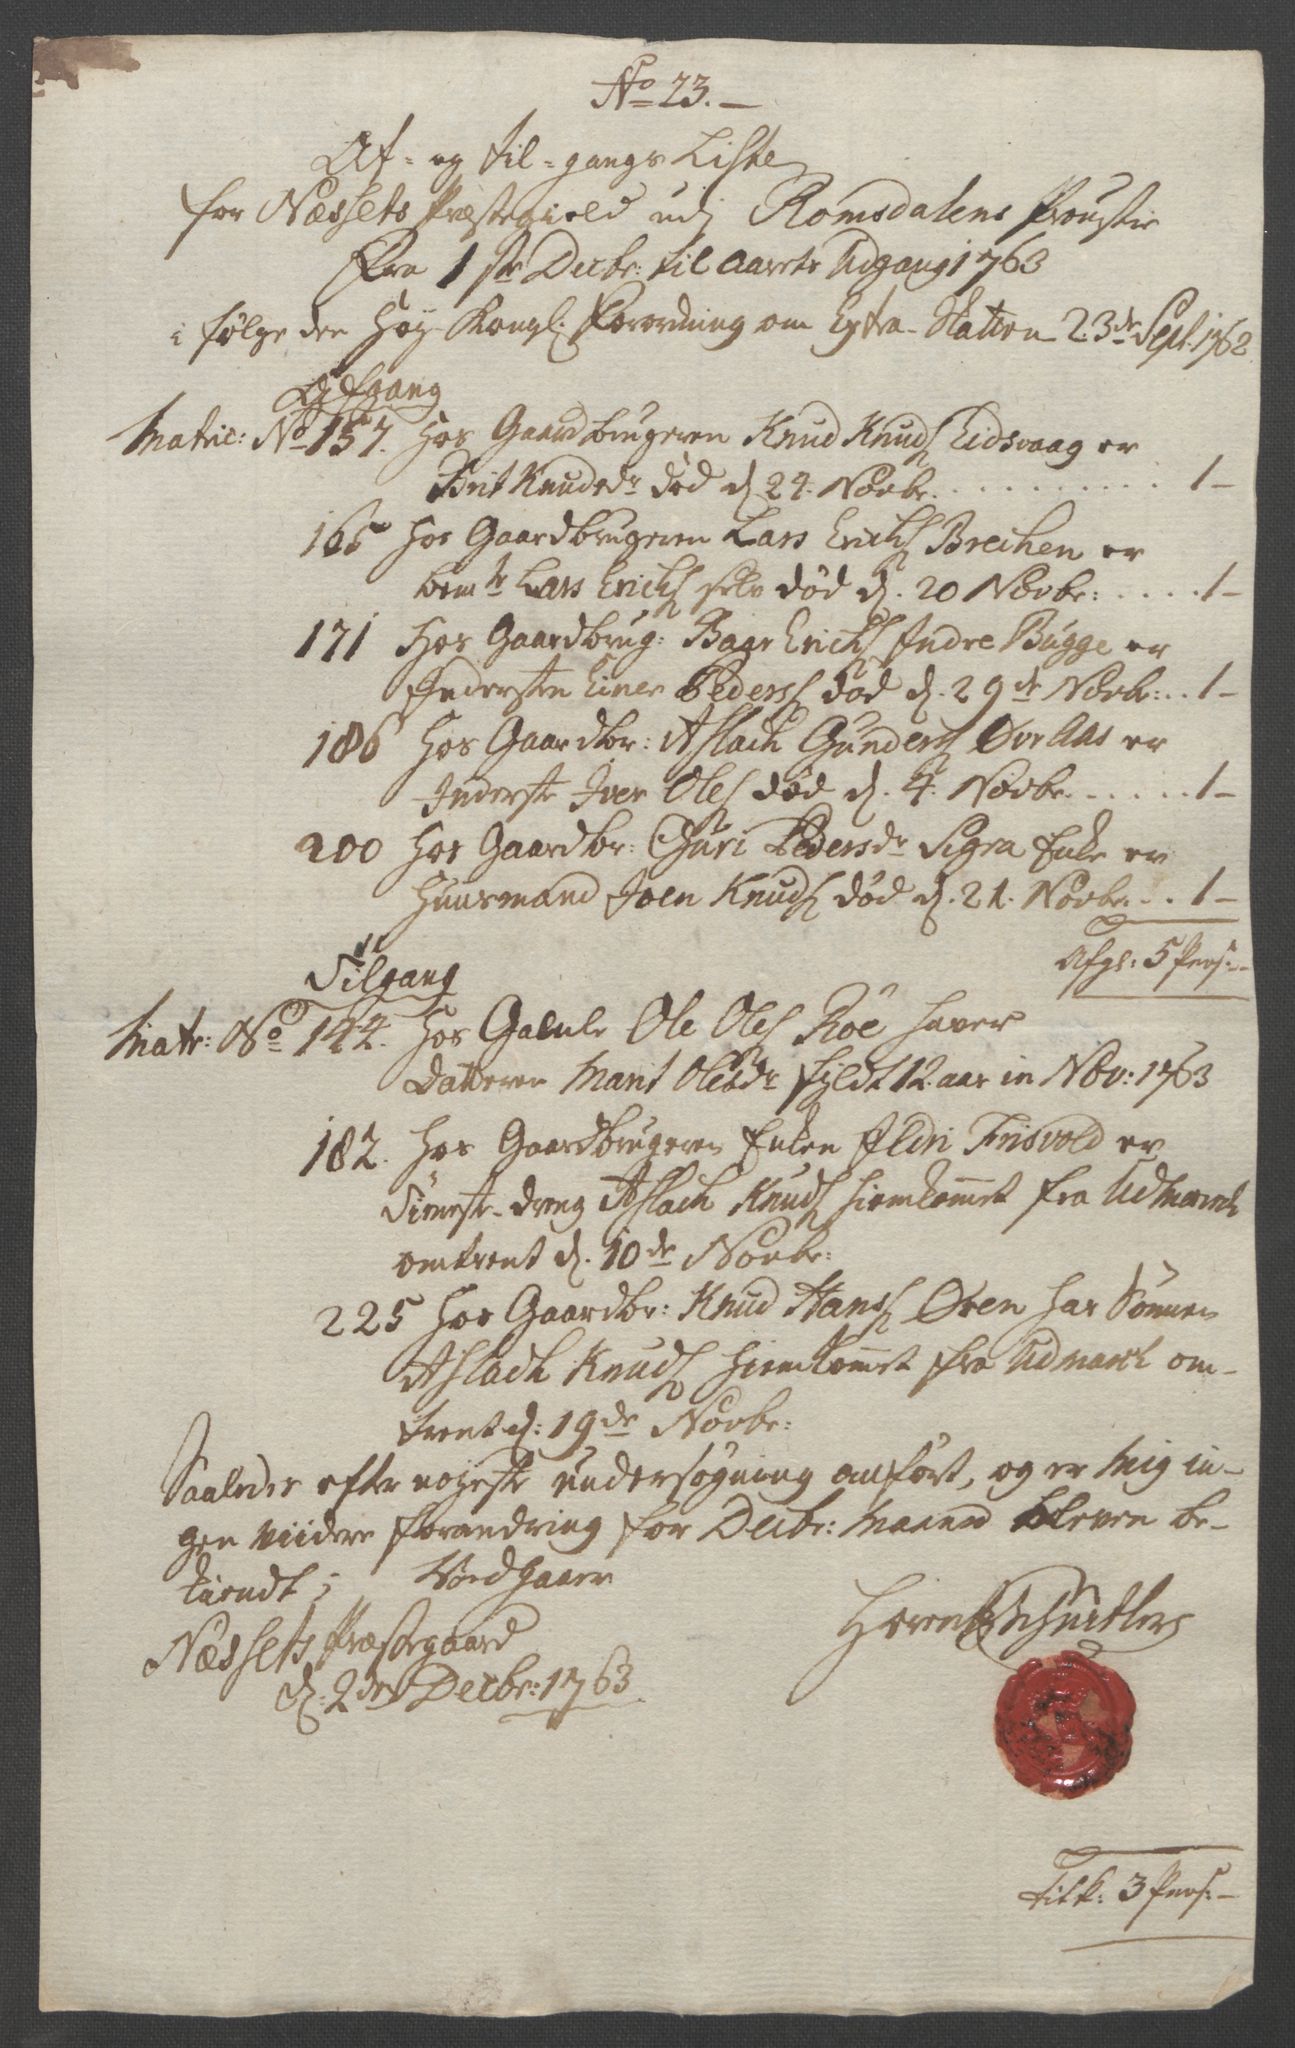 No 23.
Af- og til-gangs Liste
for Næssets Præstegield udj Romsdalens Proustie
Fra 1ste Decbr: til Aarets Udgang 1763
i følge den Høy-Kongl: Forordning om Extra-Skatten 23de Sept: 1762
Afgang
Matric: No 157. Hos Gaardbrugeren Knud Knuds. Eidsvaag er
Brit Knudsdr død d. 24. Novbr. . . . . . . . . . 1-
165 Hos Gaardbrugeren Lars Erichs. Brechen er
bemte Lars Erichs. selv død d. 20 Novbr: . . . . . 1-
171 Hos Gaardbrug: Baar Erichs. Indre Bugge er
Indersten Einer Peders. død d. 29de Novbr: . . 1-
186 Hos Gaardbr: Aslach Gunders. Øvr Aas er
Inderste Iver Oles. død d. 4. Novbr. . . . . . 1-
200 Hos Gaardbr: Guri Pedersdr Sigra Enke er
Huusmand Joen Knuds. død d. 21. Novbr. . . 1-
Afg: 5 Pers:-
Tilgang
Matr: No 144. Hos Gamle Ole Oles. Röe haver
Datteren Marit Olesdr fyldt 12. aar in Nov: 1763
182. Hos Gaardbrugeren Enken Ildri Frisvold er
Tieneste-dreng Aslach Knuds. hiemkommet fra Udmarck
omtrent d. 10de Novbr:
225 Hos Gaardbr: Knud Hans. Øren har Sønnen
Aslach Knuds. hiemkommet fra Udmarck om-
trent d: 19de Novbr:
Saaledes efter nøjeste undersøgning anført, og er mig in-
gen viidere forandring for Decbr: Maaned bleven be-
kiendt; Vedgaaer
Næssets Præstegaard
d: 2den Decbr: 1763
Schnitler
Tilk: 3 Pers:-